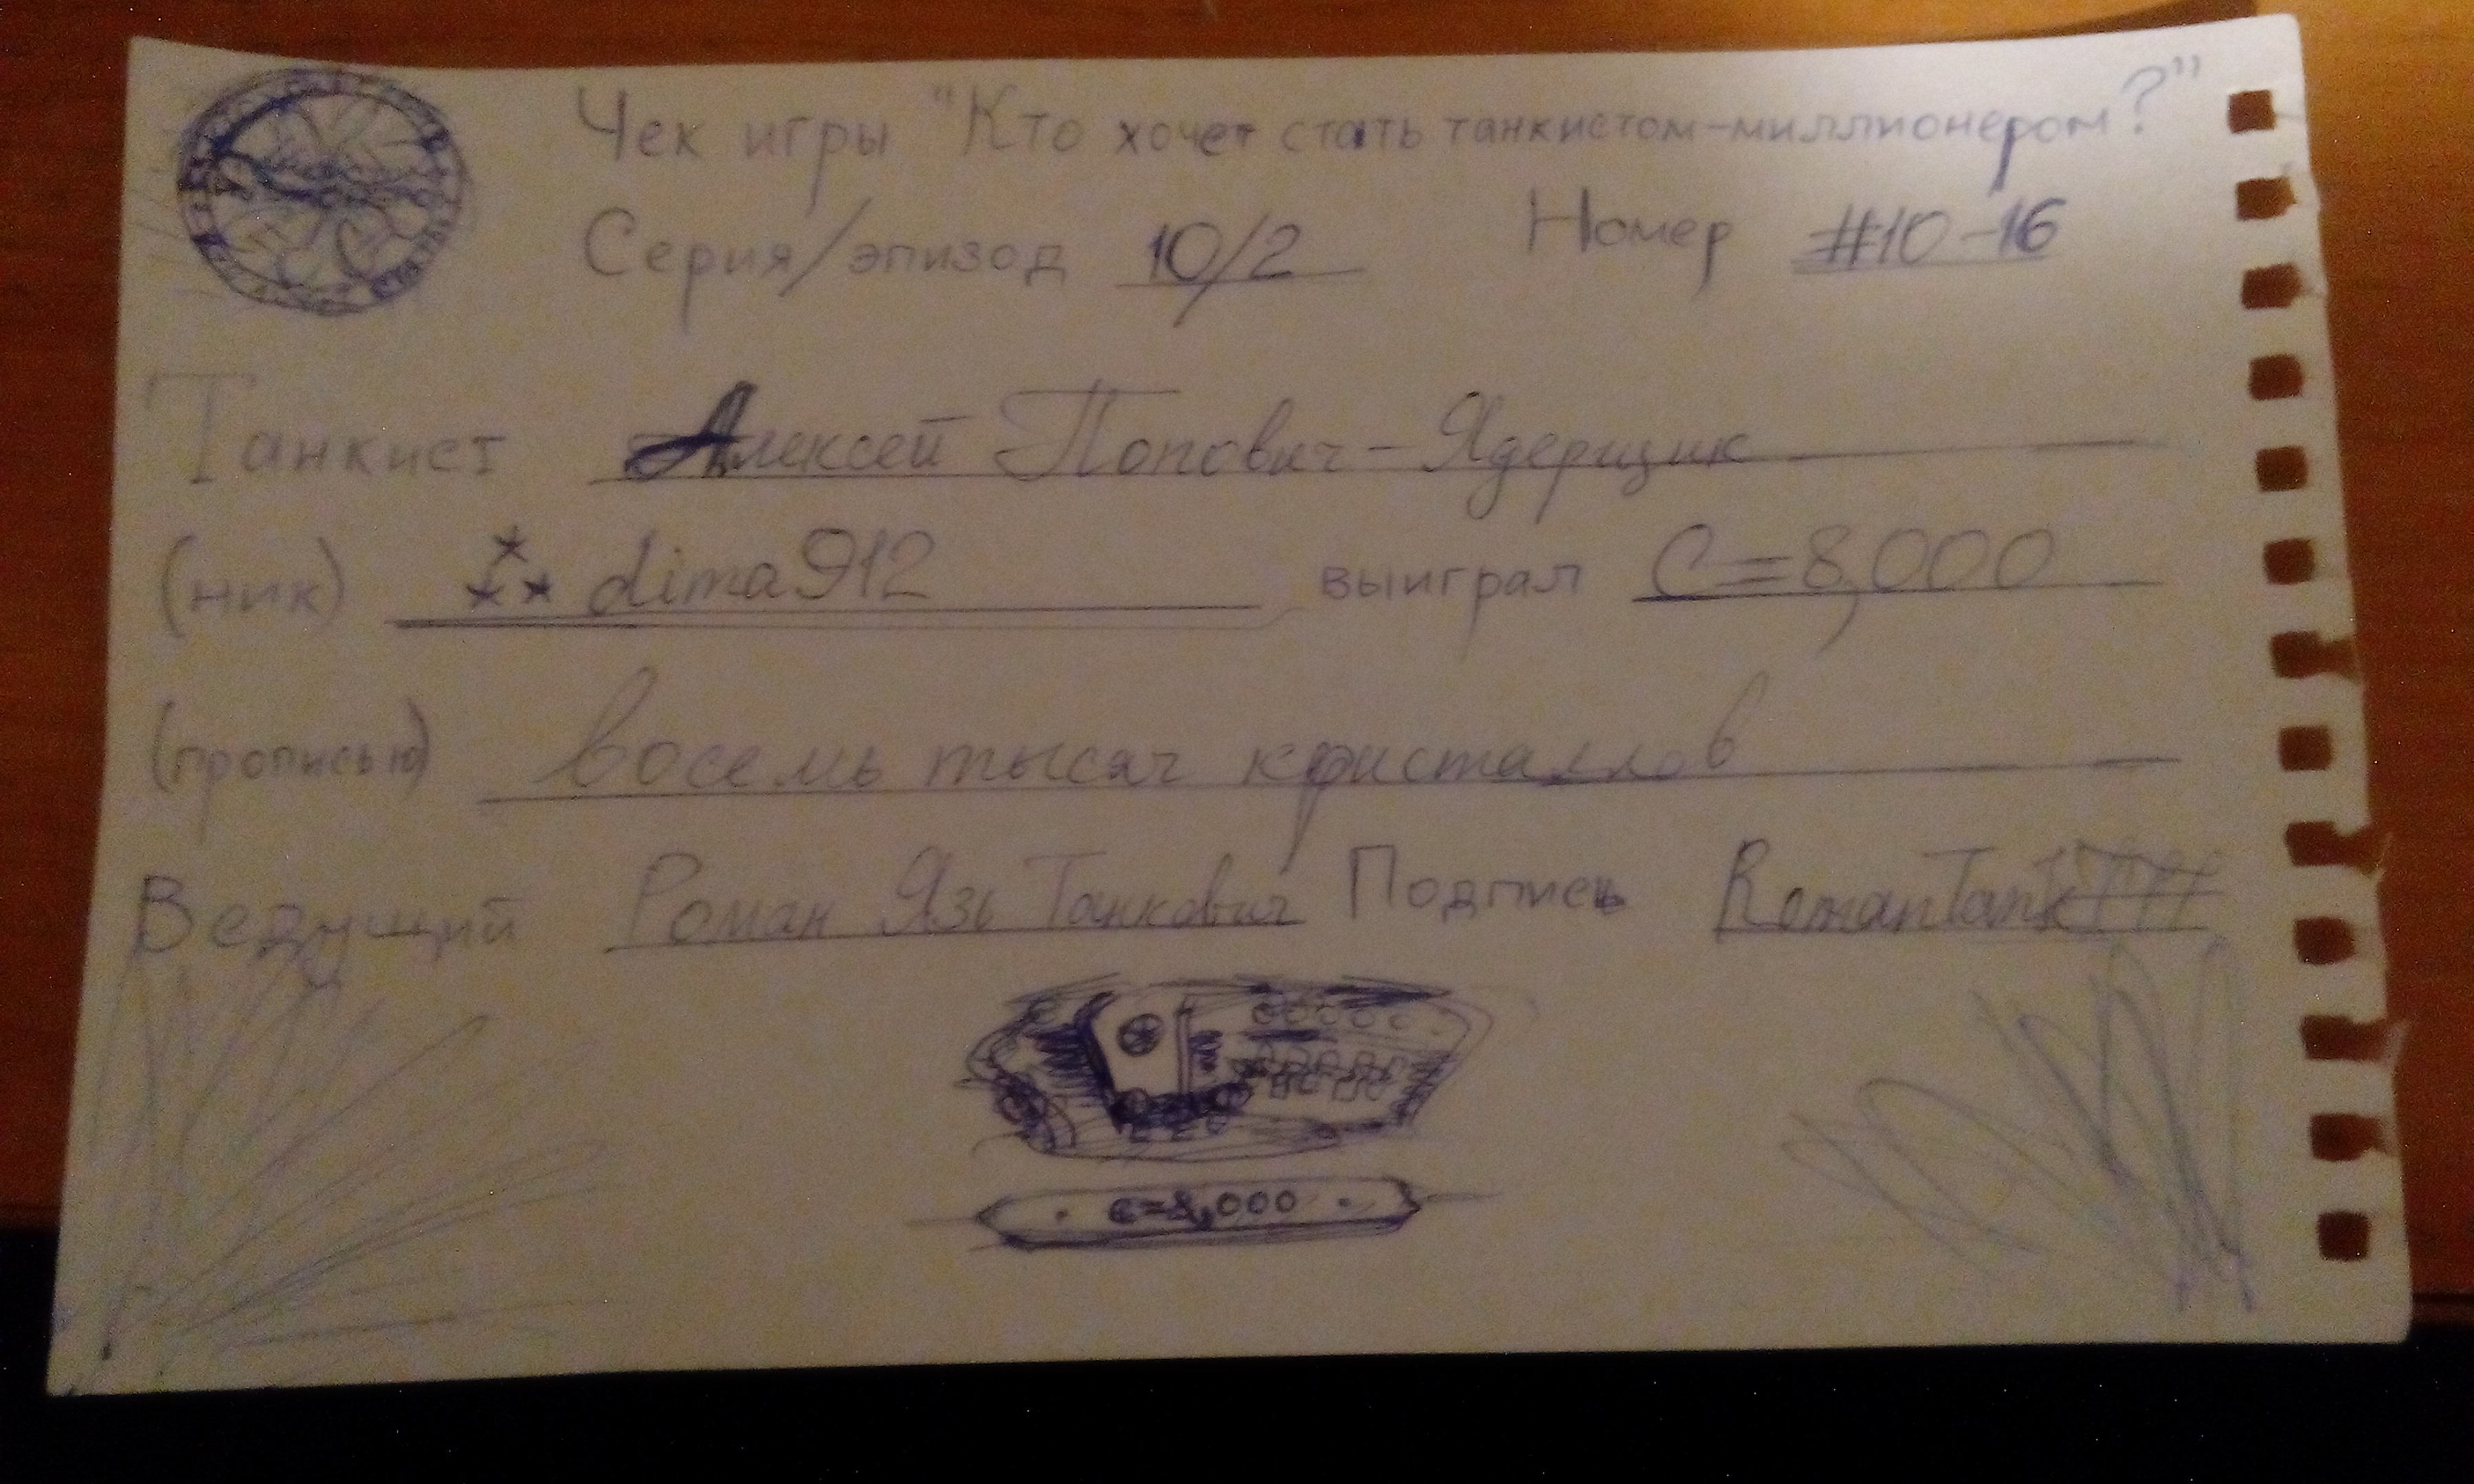 Чек игры "Кто хочет стать танкистом-миллионером?"
Серия/эпизод 10/2 Номер #10-16
Танкист Алексей Попович-Ядерщик
(ник) dima912 выиграл C=8,000
(прописью) восемь тысяч кристаллов
Ведущий Роман Язь Танкович Подпись RomanTank
C=8,000